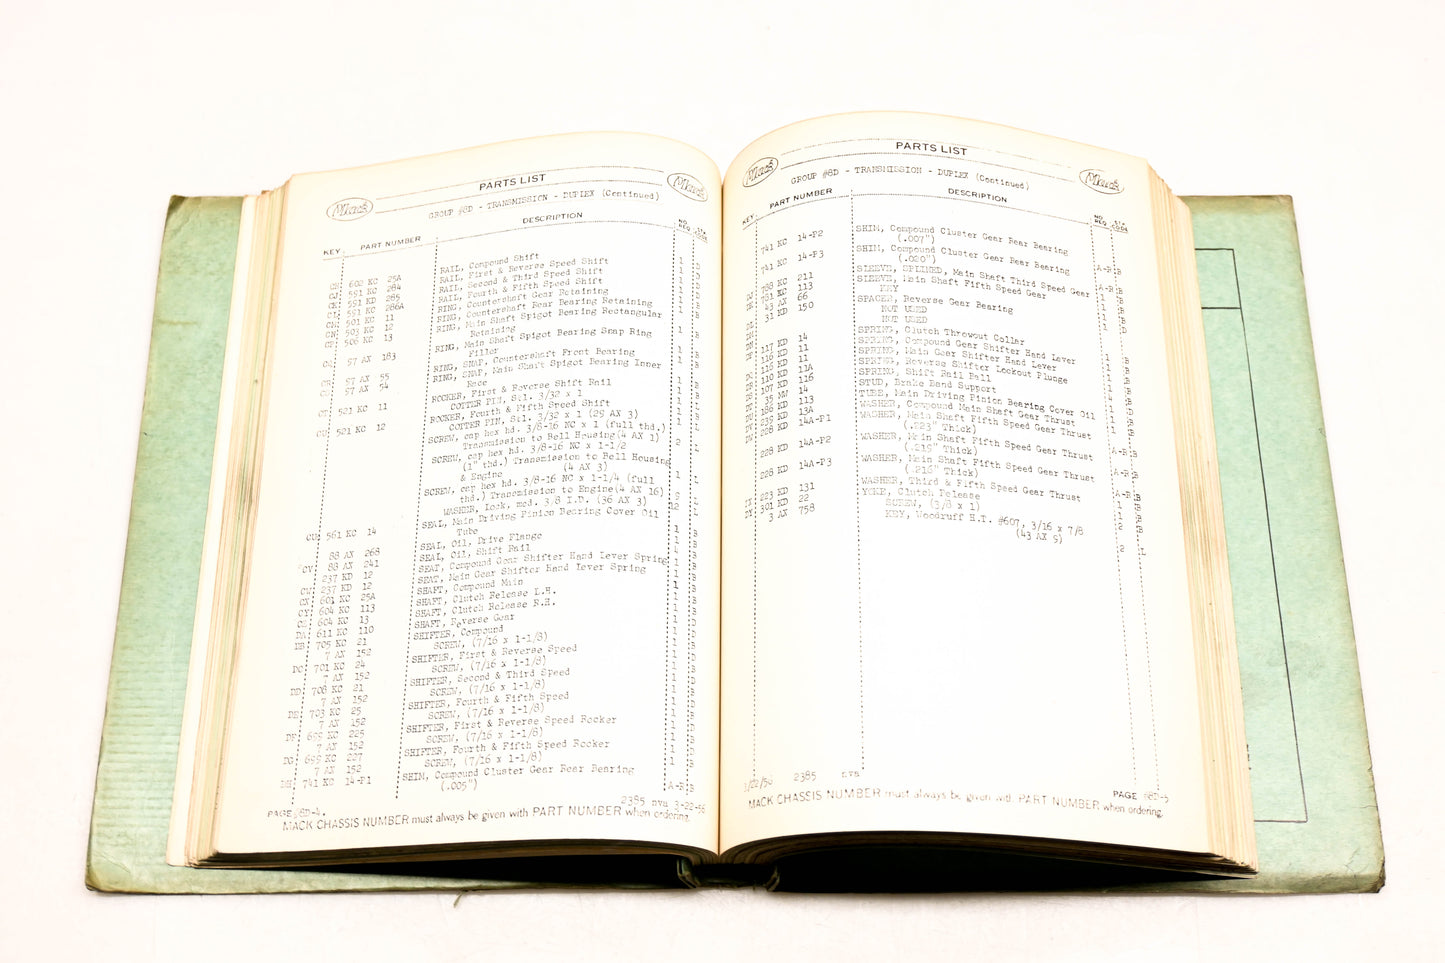 PARTS LIST
Mack
Mack
GROUP #8D - TRANSMISSION - DUPLEX (Continued)
KEY PART NUMBER DESCRIPTION NO. REQ. STK. CODE
RAIL, Compound Shift 1
602 KC 25A RAIL, First & Reverse Speed Shift 1
591 KC 284 RAIL, Second & Third Speed Shift 1
591 KD 285 RAIL, Fourth & Fifth Speed Shift 1
591 KC 286A RING, Countershaft Gear Retaining 1
501 KC 11 RING, Countershaft Rear Bearing Retaining 1
503 KC 12 RING, Main Shaft Spigot Bearing Rectangular
506 KC 13 Retaining 1
RING, Main Shaft Spigot Bearing Snap Ring
97 AX 183 Filler 1
RING, SNAP, Countershaft Front Bearing 1
97 AX 55 RING, SNAP, Main Shaft Spigot Bearing Inner
97 AX 54 Race 1
ROCKER, First & Reverse Shift Rail 1
CT 521 KC 11 COTTER PIN, Stl. 3/32 x 1 1
ROCKER, Fourth & Fifth Speed Shift 1
CU 521 KC 12 COTTER PIN, Stl. 3/32 x 1 (29 AX 3) 1
SCREW, cap hex hd. 3/8-16 NC x 1 (full thd.)
Transmission to Bell Housing(4 AX 1) 2
SCREW, cap hex hd. 3/8-16 NC x 1-1/2
(1" thd.) Transmission to Bell Housing
& Engine (4 AX 3) 1
SCREW, cap hex hd. 3/8-16 NC x 1-1/4 (full
thd.) Transmission to Engine(4 AX 16) 9
WASHER, lock, med. 3/8 I.D. (36 AX 3) 12
SEAL, Main Driving Pinion Bearing Cover Oil
CU 561 KC 14 Tube 1
SEAL, Oil, Drive Flange 1
88 AX 268 SEAL, Oil, Shift Rail 4
CV 88 AX 241 SEAT, Compound Gear Shifter Hand Lever Spring 1
237 KD 12 SEAT, Main Gear Shifter Hand Lever Spring 1
CW 237 KD 12 SHAFT, Compound Main 1
CX 601 KC 25A SHAFT, Clutch Release L.H. 1
CY 604 KC 113 SHAFT, Clutch Release R.H. 1
CZ 604 KC 13 SHAFT, Reverse Gear 1
DA 611 KC 110 SHIFTER, Compound 1
DB 705 KC 21 SCREW, (7/16 x 1-1/8) 1
7 AX 152 SHIFTER, First & Reverse Speed 1
DC 701 KC 24 SCREW, (7/16 x 1-1/8) 1
7 AX 152 SHIFTER, Second & Third Speed 1
DD 708 KC 21 SCREW, (7/16 x 1-1/8) 1
7 AX 152 SHIFTER, Fourth & Fifth Speed 1
DE 703 KC 25 SCREW, (7/16 x 1-1/8) 1
7 AX 152 SHIFTER, First & Reverse Speed Rocker 1
DF 699 KC 225 SCREW, (7/16 x 1-1/8) 1
7 AX 152 SHIFTER, Fourth & Fifth Speed Rocker 1
DG 699 KC 227 SCREW, (7/16 x 1-1/8) 1
7 AX 152 SHIM, Compound Cluster Gear Rear Bearing
DH 741 KC 14-P1 (.005") A-R B
PAGE #8D-4. 2385 nva 3-22-56
MACK CHASSIS NUMBER must always be given with PART NUMBER when ordering.
PARTS LIST
Mack
Mack
GROUP #8D - TRANSMISSION - DUPLEX (Continued)
KEY PART NUMBER DESCRIPTION NO. REQ. STK. CODE
741 KC 14-P2 SHIM, Compound Cluster Gear Rear Bearing
(.007") A-R B
741 KC 14-P3 SHIM, Compound Cluster Gear Rear Bearing
(.020") A-R B
788 KC 211 SLEEVE, SPLINED, Main Shaft Third Speed Gear 1 B
781 KC 113 SLEEVE, Main Shaft Fifth Speed Gear 1 B
43 AX 66 KEY 1
31 KD 150 SPACER, Reverse Gear Bearing 1 D
NOT USED
NOT USED
117 KD 14 SPRING, Clutch Throwout Collar 1 B
116 KD 11 SPRING, Compound Gear Shifter Hand Lever 1 B
116 KD 11 SPRING, Main Gear Shifter Hand Lever 1 B
110 KD 11A SPRING, Reverse Shifter Lockout Plunge 1 B
107 KD 116 SPRING, Shift Rail Ball 4 B
35 MW 14 STUD, Brake Band Support 1 D
186 KD 113 TUBE, Main Driving Pinion Bearing Cover Oil 1 B
239 KD 13A WASHER, Compound Main Shaft Gear Thrust 1 B
228 KD 14A-P1 WASHER, Main Shaft Fifth Speed Gear Thrust
(.223" Thick) A-R B
228 KD 14A-P2 WASHER, Main Shaft Fifth Speed Gear Thrust
(.219" Thick) A-R B
228 KD 14A-P3 WASHER, Main Shaft Fifth Speed Gear Thrust
(.216" Thick) A-R B
223 KD 131 WASHER, Third & Fifth Speed Gear Thrust 1 B
301 KD 22 YOKE, Clutch Release 1 B
3 AX 758 SCREW, (3/8 x 1) 2 B
KEY, Woodruff H.T. #607, 3/16 x 7/8
(43 AX 5) 2 L
3/22/56 2385 nva PAGE #8D-5
MACK CHASSIS NUMBER must always be given with PART NUMBER when ordering.